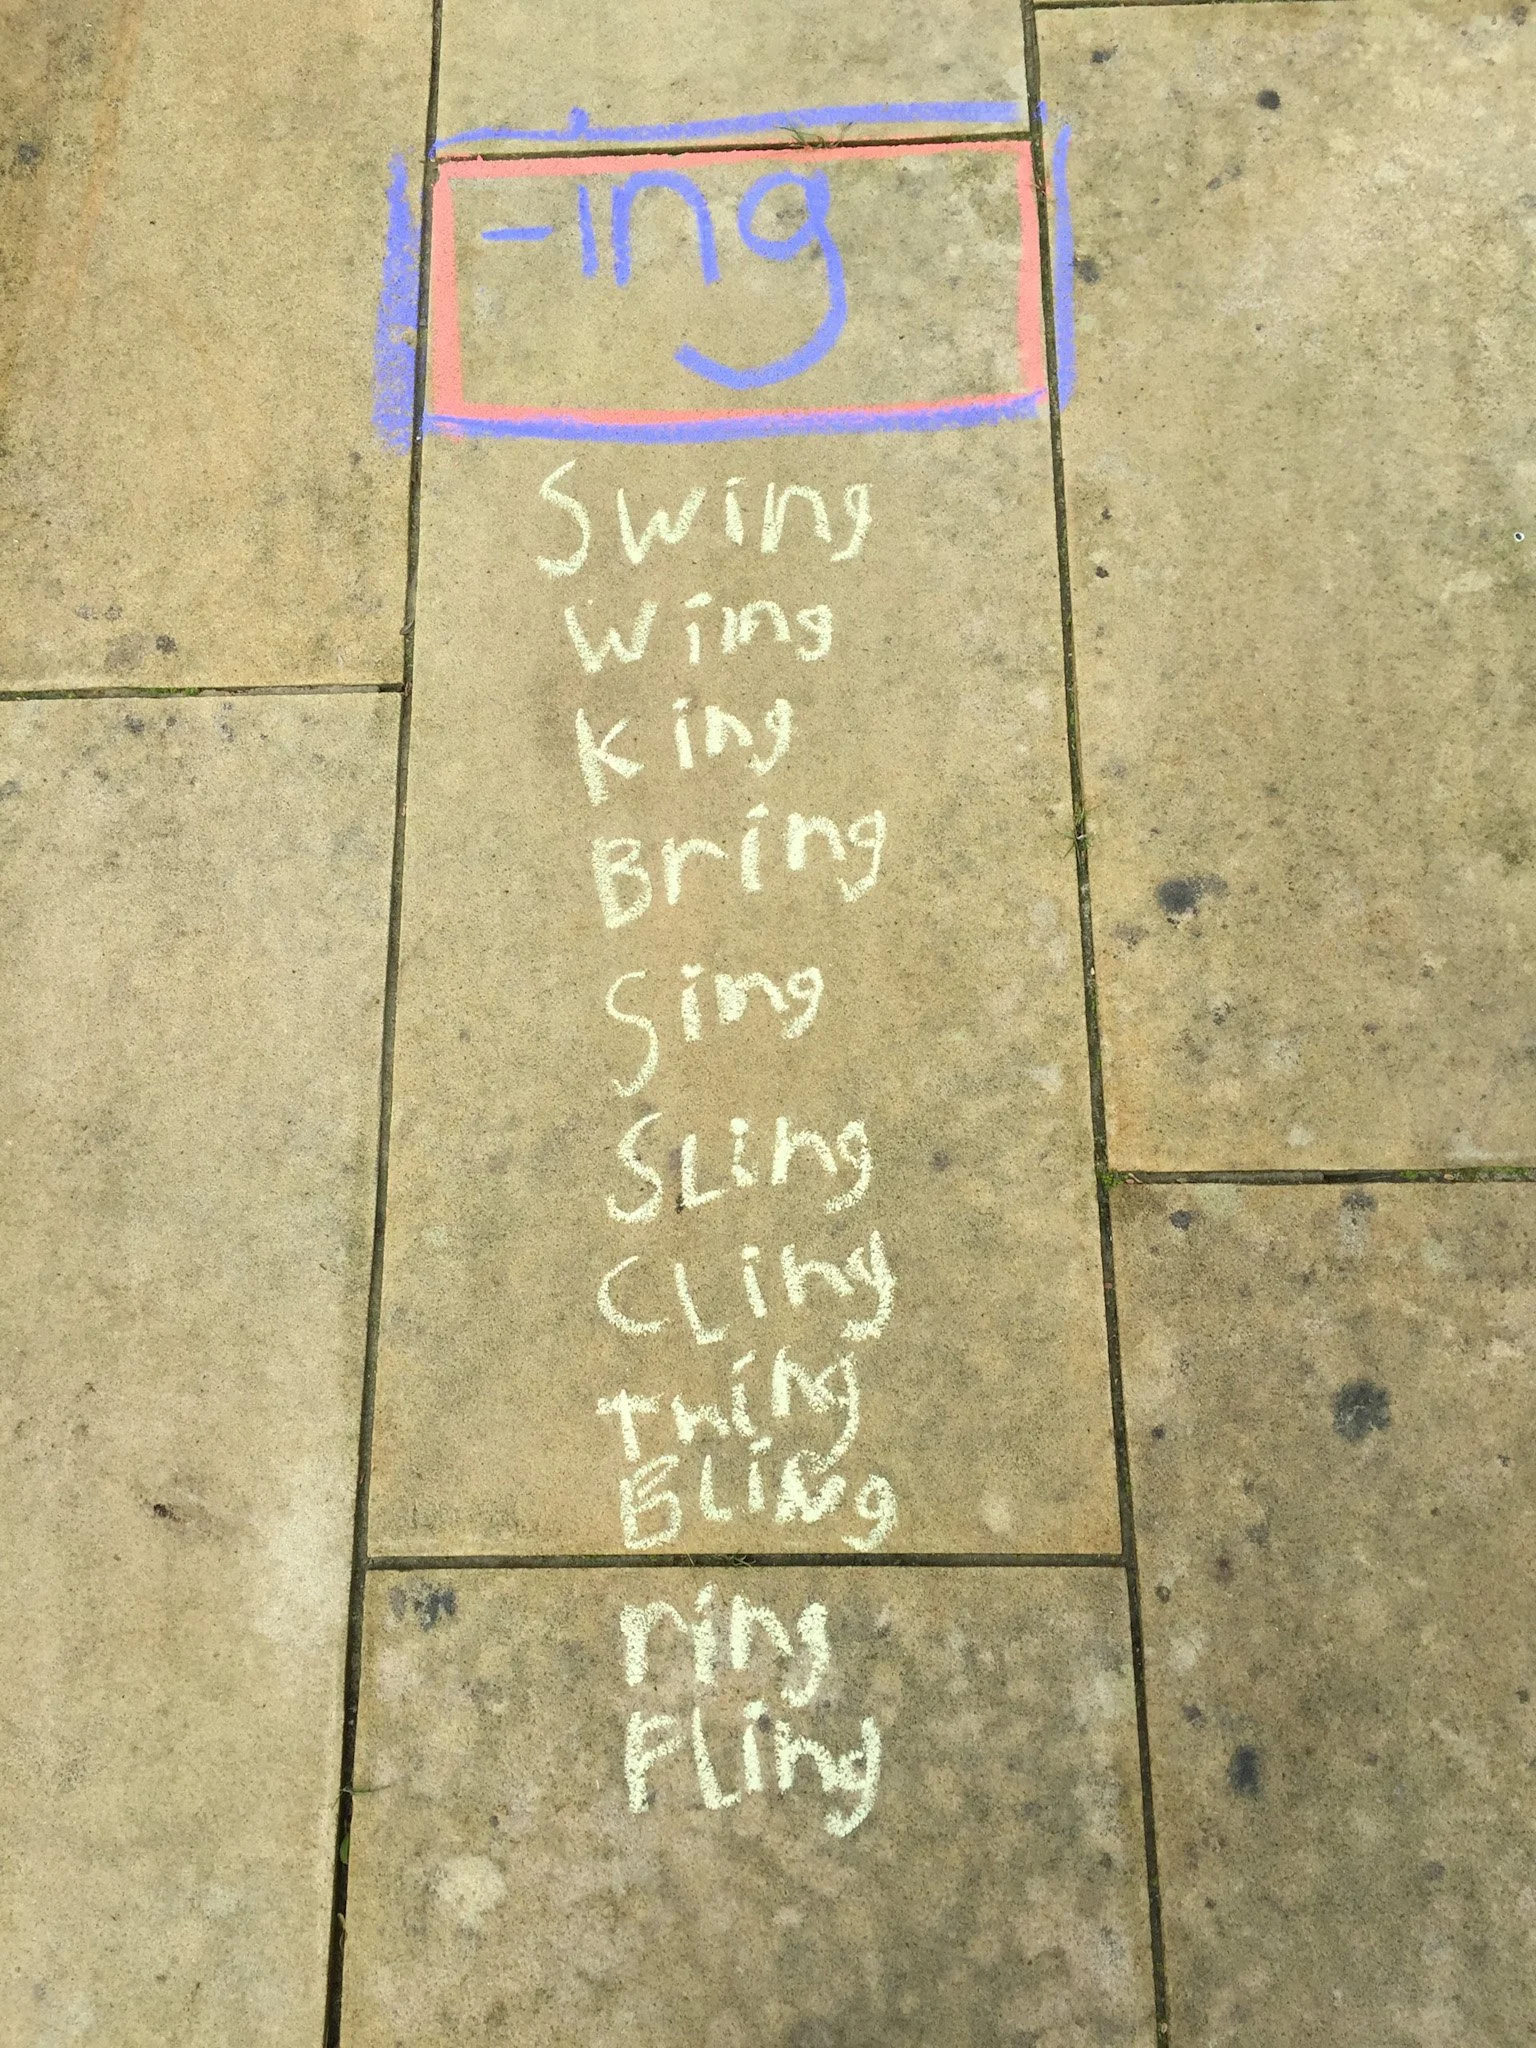 -ing
Swing
Wing
King
Bring
Sing
SLing
CLing
Thing
BLing
ring
FLing